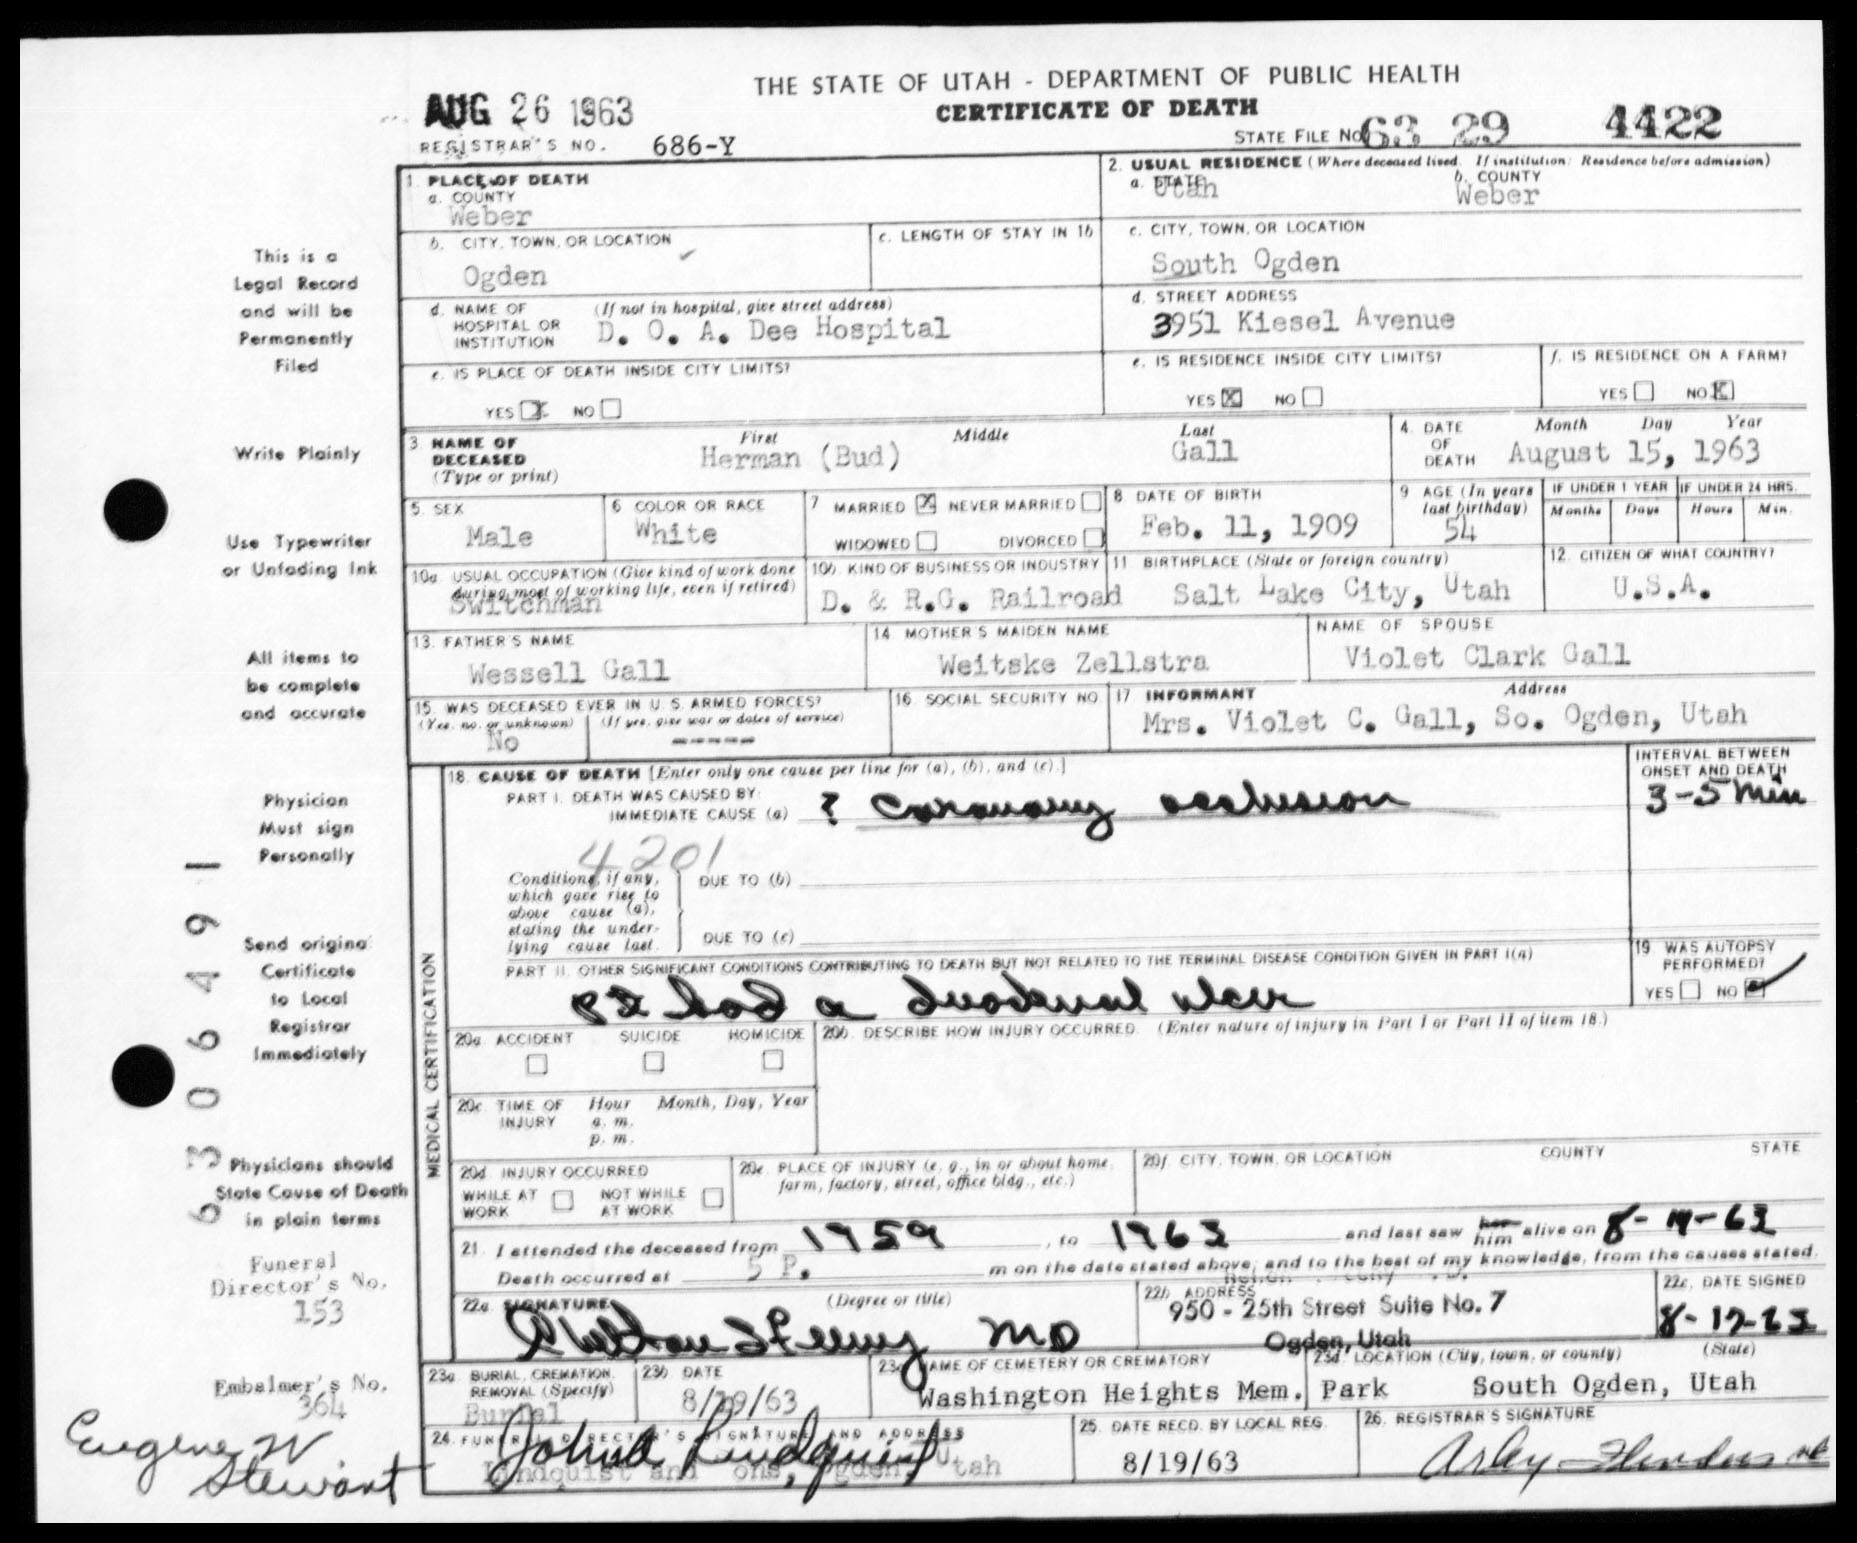 THE STATE OF UTAH - DEPARTMENT OF PUBLIC HEALTH
AUG 26 1963
CERTIFICATE OF DEATH
REGISTRAR'S NO. 686-Y
STATE FILE NO 63 29 4422
1. PLACE OF DEATH
a. COUNTY
Weber
2. USUAL RESIDENCE (Where deceased lived. If institution: Residence before admission)
a. STATE
Utah
b. COUNTY
Weber
b. CITY, TOWN, OR LOCATION
Ogden
c. LENGTH OF STAY IN 1b
c. CITY, TOWN, OR LOCATION
South Ogden
d. NAME OF HOSPITAL OR INSTITUTION
(If not in hospital, give street address)
D. O. A. Dee Hospital
d. STREET ADDRESS
3951 Kiesel Avenue
e. IS PLACE OF DEATH INSIDE CITY LIMITS?
YES X NO
e. IS RESIDENCE INSIDE CITY LIMITS?
YES X NO
f. IS RESIDENCE ON A FARM?
YES NO X
3. NAME OF DECEASED
(Type or print)
First Middle Last
Herman (Bud) Gall
4. DATE OF DEATH
Month Day Year
August 15, 1963
5. SEX
Male
6 COLOR OR RACE
White
7 MARRIED X NEVER MARRIED
WIDOWED DIVORCED
8 DATE OF BIRTH
Feb. 11, 1909
9 AGE (In years last birthday)
54
IF UNDER 1 YEAR
Months Days
IF UNDER 24 HRS.
Hours Min.
10a. USUAL OCCUPATION (Give kind of work done during most of working life, even if retired)
Switchman
10b. KIND OF BUSINESS OR INDUSTRY
D. & R.G. Railroad
11 BIRTHPLACE (State or foreign country)
Salt Lake City, Utah
12. CITIZEN OF WHAT COUNTRY?
U.S.A.
13. FATHER'S NAME
Wessell Gall
14 MOTHER'S MAIDEN NAME
Weitske Zellstra
NAME OF SPOUSE
Violet Clark Gall
15. WAS DECEASED EVER IN U. S. ARMED FORCES?
(Yes, no, or unknown) (If yes, give war or dates of service)
No -----
16 SOCIAL SECURITY NO.
17 INFORMANT Address
Mrs. Violet C. Gall, So. Ogden, Utah
MEDICAL CERTIFICATION
18. CAUSE OF DEATH [Enter only one cause per line for (a), (b), and (c).]
INTERVAL BETWEEN ONSET AND DEATH
PART I. DEATH WAS CAUSED BY:
IMMEDIATE CAUSE (a) ? Coronary occlusion
3-5 Min
4201
Conditions, if any, which gave rise to above cause (a), stating the underlying cause last.
DUE TO (b)
DUE TO (c)
PART II. OTHER SIGNIFICANT CONDITIONS CONTRIBUTING TO DEATH BUT NOT RELATED TO THE TERMINAL DISEASE CONDITION GIVEN IN PART I(a)
pt had a duodenal ulcer
19. WAS AUTOPSY PERFORMED?
YES NO
20a. ACCIDENT SUICIDE HOMICIDE
20b. DESCRIBE HOW INJURY OCCURRED. (Enter nature of injury in Part I or Part II of item 18.)
20c. TIME OF INJURY
Hour Month, Day, Year
a. m.
p. m.
20d. INJURY OCCURRED
WHILE AT WORK NOT WHILE AT WORK
20e. PLACE OF INJURY (e. g., in or about home, farm, factory, street, office bldg., etc.)
20f. CITY, TOWN, OR LOCATION COUNTY STATE
21. I attended the deceased from 1959, to 1963 and last saw her him alive on 8-14-63
Death occurred at 5 P. m on the date stated above, and to the best of my knowledge, from the causes stated.
22a. SIGNATURE (Degree or title)
MD
22b. ADDRESS
950 - 25th Street Suite No. 7
Ogden, Utah
22c. DATE SIGNED
8-17-63
23a. BURIAL, CREMATION, REMOVAL (Specify)
Burial
23b. DATE
8/19/63
23c. NAME OF CEMETERY OR CREMATORY
Washington Heights Mem. Park
23d. LOCATION (City, town, or county) (State)
South Ogden, Utah
24. FUNERAL DIRECTOR'S SIGNATURE AND ADDRESS
John A Lindquist
Lindquist and Sons, Ogden, Utah
25. DATE RECD. BY LOCAL REG.
8/19/63
26. REGISTRAR'S SIGNATURE
This is a
Legal Record
and will be
Permanently
Filed
Write Plainly
Use Typewriter
or Unfading Ink
All items to
be complete
and accurate
Physician
Must sign
Personally
Send original
Certificate
to Local
Registrar
Immediately
Physicians should
State Cause of Death
in plain terms
Funeral
Director's No.
153
Embalmer's No.
364
Eugene W
Stewart
63 06491